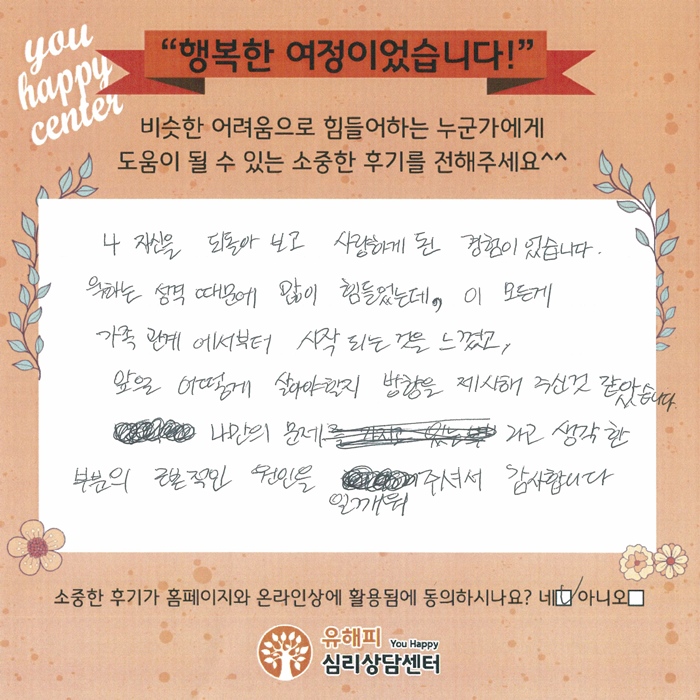 you
happy
center
“행복한 여정이었습니다!”
비슷한 어려움으로 힘들어하는 누군가에게
도움이 될 수 있는 소중한 후기를 전해주세요^^
나 자신을 되돌아 보고 사랑하게 된 경험이었습니다.
욱하는 성격 때문에 많이 힘들었는데, 이 모든게
가족 관계에서부터 시작 되는 것을 느꼈고,
앞으로 어떻게 살아야할지 방향을 제시해 주신것 같았습니다.
나만의 문제라고 생각한
부분의 근본적인 원인을 일깨워주셔서 감사합니다
소중한 후기가 홈페이지와 온라인상에 활용됨에 동의하시나요? 네 아니오
유해피 You Happy
심리상담센터